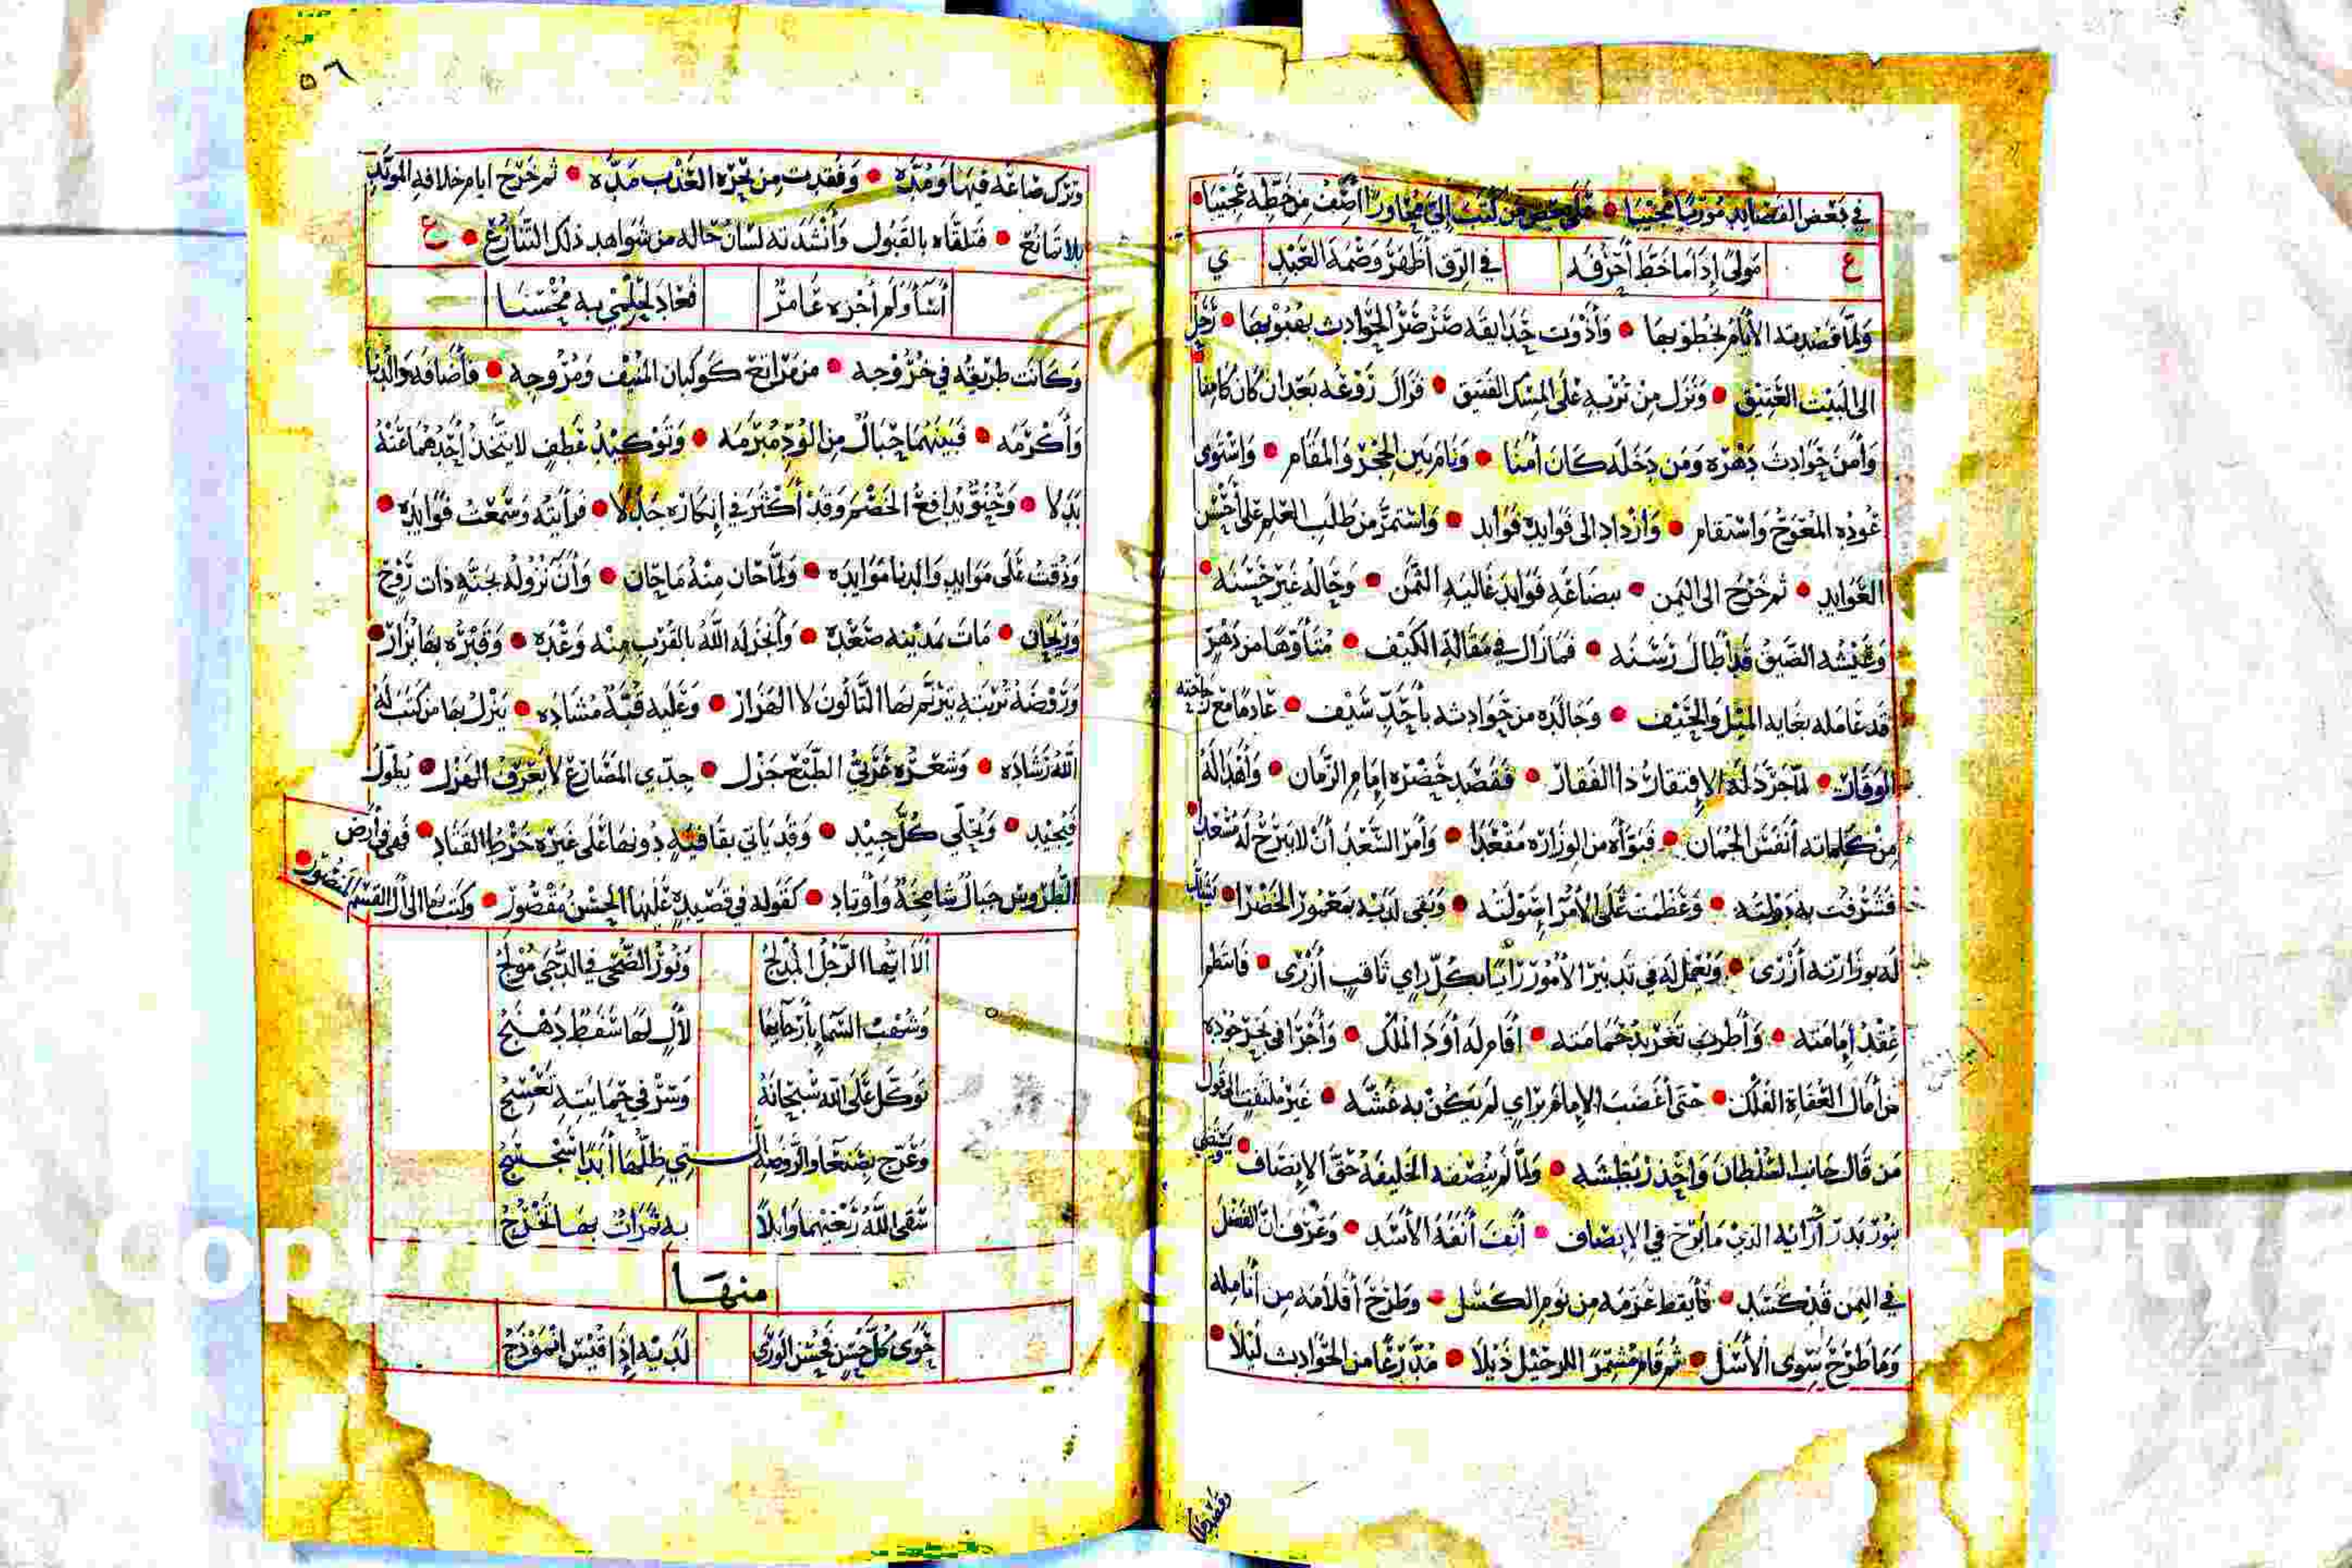 في بعض القصايد مورّيًا مجيبا • على شخص من كتب إلي مجاورًا أصف من خطه عجيبا •
ع مولىً إذا ما خط أحرفه في الرق أظهر وصمة العبد ي
ولما قصدته الأيام بخطوبها • وأذوت حدايقه صرصر الحوادث بهبوبها • رحل
الى البيت العتيق • ونزل من تربه على المسك الفتيق • فزال روعه بعد ان كان كامنا •
وأمن حوادث دهره ومن دخله كان أمنا • ونام بين الحجر والمقام • واستوى
عوده المعوج واستقام • وازداد الى فوايده فوايد • واستمر من طلب العلم على أحسن
العوايد • ثم خرج الى اليمن • ببضاعة فوايد غالية الثمن • وحاله غير حسنه •
وعيشه الضيق قد أطال رسنه • فما زال في مقالة الكيف • متأوها من دهر
قد عامله بغاية الميل والحيف • وجالده من حوادثه بأحد سيف • عادمًا مع راحته
الوقار • لما جرد له الإفتقار ذا الفقار • فقصد حضرة إمام الزمان • وأهدا له
من كلماته أنفس الجمان • فبوأه من الوزارة مقعدا • وأمر السعد أن لا يبرح له مسعدا
فتشرفت به دولته • وعظمت على الأمرا صولته • وبقى لديه بمعمور الخضرا •
له بوزارته أزرى • ويعمل له في تدبير الأمور رايا بكل راي ثاقب أزرى • فانتظم
عقد إمامته • وأطرب تغريد حمامته • أقام له أود الملك • وأجرا في بحر جوده
من أمال العفاة الفلك • حتى أغضب الإمام براي لم يكن به غشه • غير ملتفت الى قول
من قال جانب السلطان واحذر بطشه • ولما لم ينصفه الخليفة حق الإنصاف •
بنور بدر آرائه الذي ما برح في الإنصاف • أنف أنفة الأسد • وعرف ان الفضل
في اليمن قد كسد • فأيقظ عزمه من نوم الكسل • وطرح أقلامه من أنامله
وما طرح سوى الأسل • ثم قام مشمرًا للرحيل ذيلا • مدّرعًا من الحوادث ليلا •
٥٦
وترك صناعه فيها ومُدّه • وفقدت من بحره العذب مدّه • ثم خرج ايام خلافة المويد
بلا تمانع • فتلقاه بالقبول وأنشدته لسان حاله من شواهد ذلك التنازع • ع
أسأ ولم أجزه عامرٌ فعاد لحلمي به محسنا
وكانت طريقه في خروجه • من مراتع كوكبان المنيف ومروجه • فأضافه والدنا
وأكرمه • فبينهما حبال من الود مبرمه • وتوكيد عطف لا يتخذ أحدهما عنه
بدلا • وحنو يدافع الخصم وقد أكثر في إنكاره جدلا • فرأيته وسمعت فوايده •
وذقت على موايد والدنا موايده • ولما حان منه ما حان • وأن نزوله بجنة ذات روح
وريحان • مات بمدينة صعدة • وأنجز له الله بالقرب منه وعده • وقبره بها يزار •
وروضة تربته يترنم بها التالون لا الهزار • وعليه قبة مشاده • ينزل بها من كتب له
الله رشاده • وشعره عربي الطبع جزل • جدي المضارع لا يعرف الهزل • يطول
فيجيد • ويحلي كل جيد • وقد ياتي بقافية دونها على غيره خرط القتاد • فهي في أرض
الطروس جبال شامخة وأوتاد • كقوله في قصيدة عليها الحسن مقصور • وكتب بها الى القسم المنصور •
ألا ايها الرجل المدلج ونور الضحى في الدجى مولج
وشهب السما بأرجايها لآلٍ لها سفط دهنج
توكل على الله سبحانه وسر في حمايته تعسج
وعرج بصنعا والروضة الـتي ظلها أبدًا سجسج
سقى الله ربعيهما وابلا به ثمرات بها تخرج
منها
حوى كل حسن فحسن الورى لديه إذا قيس انموذج